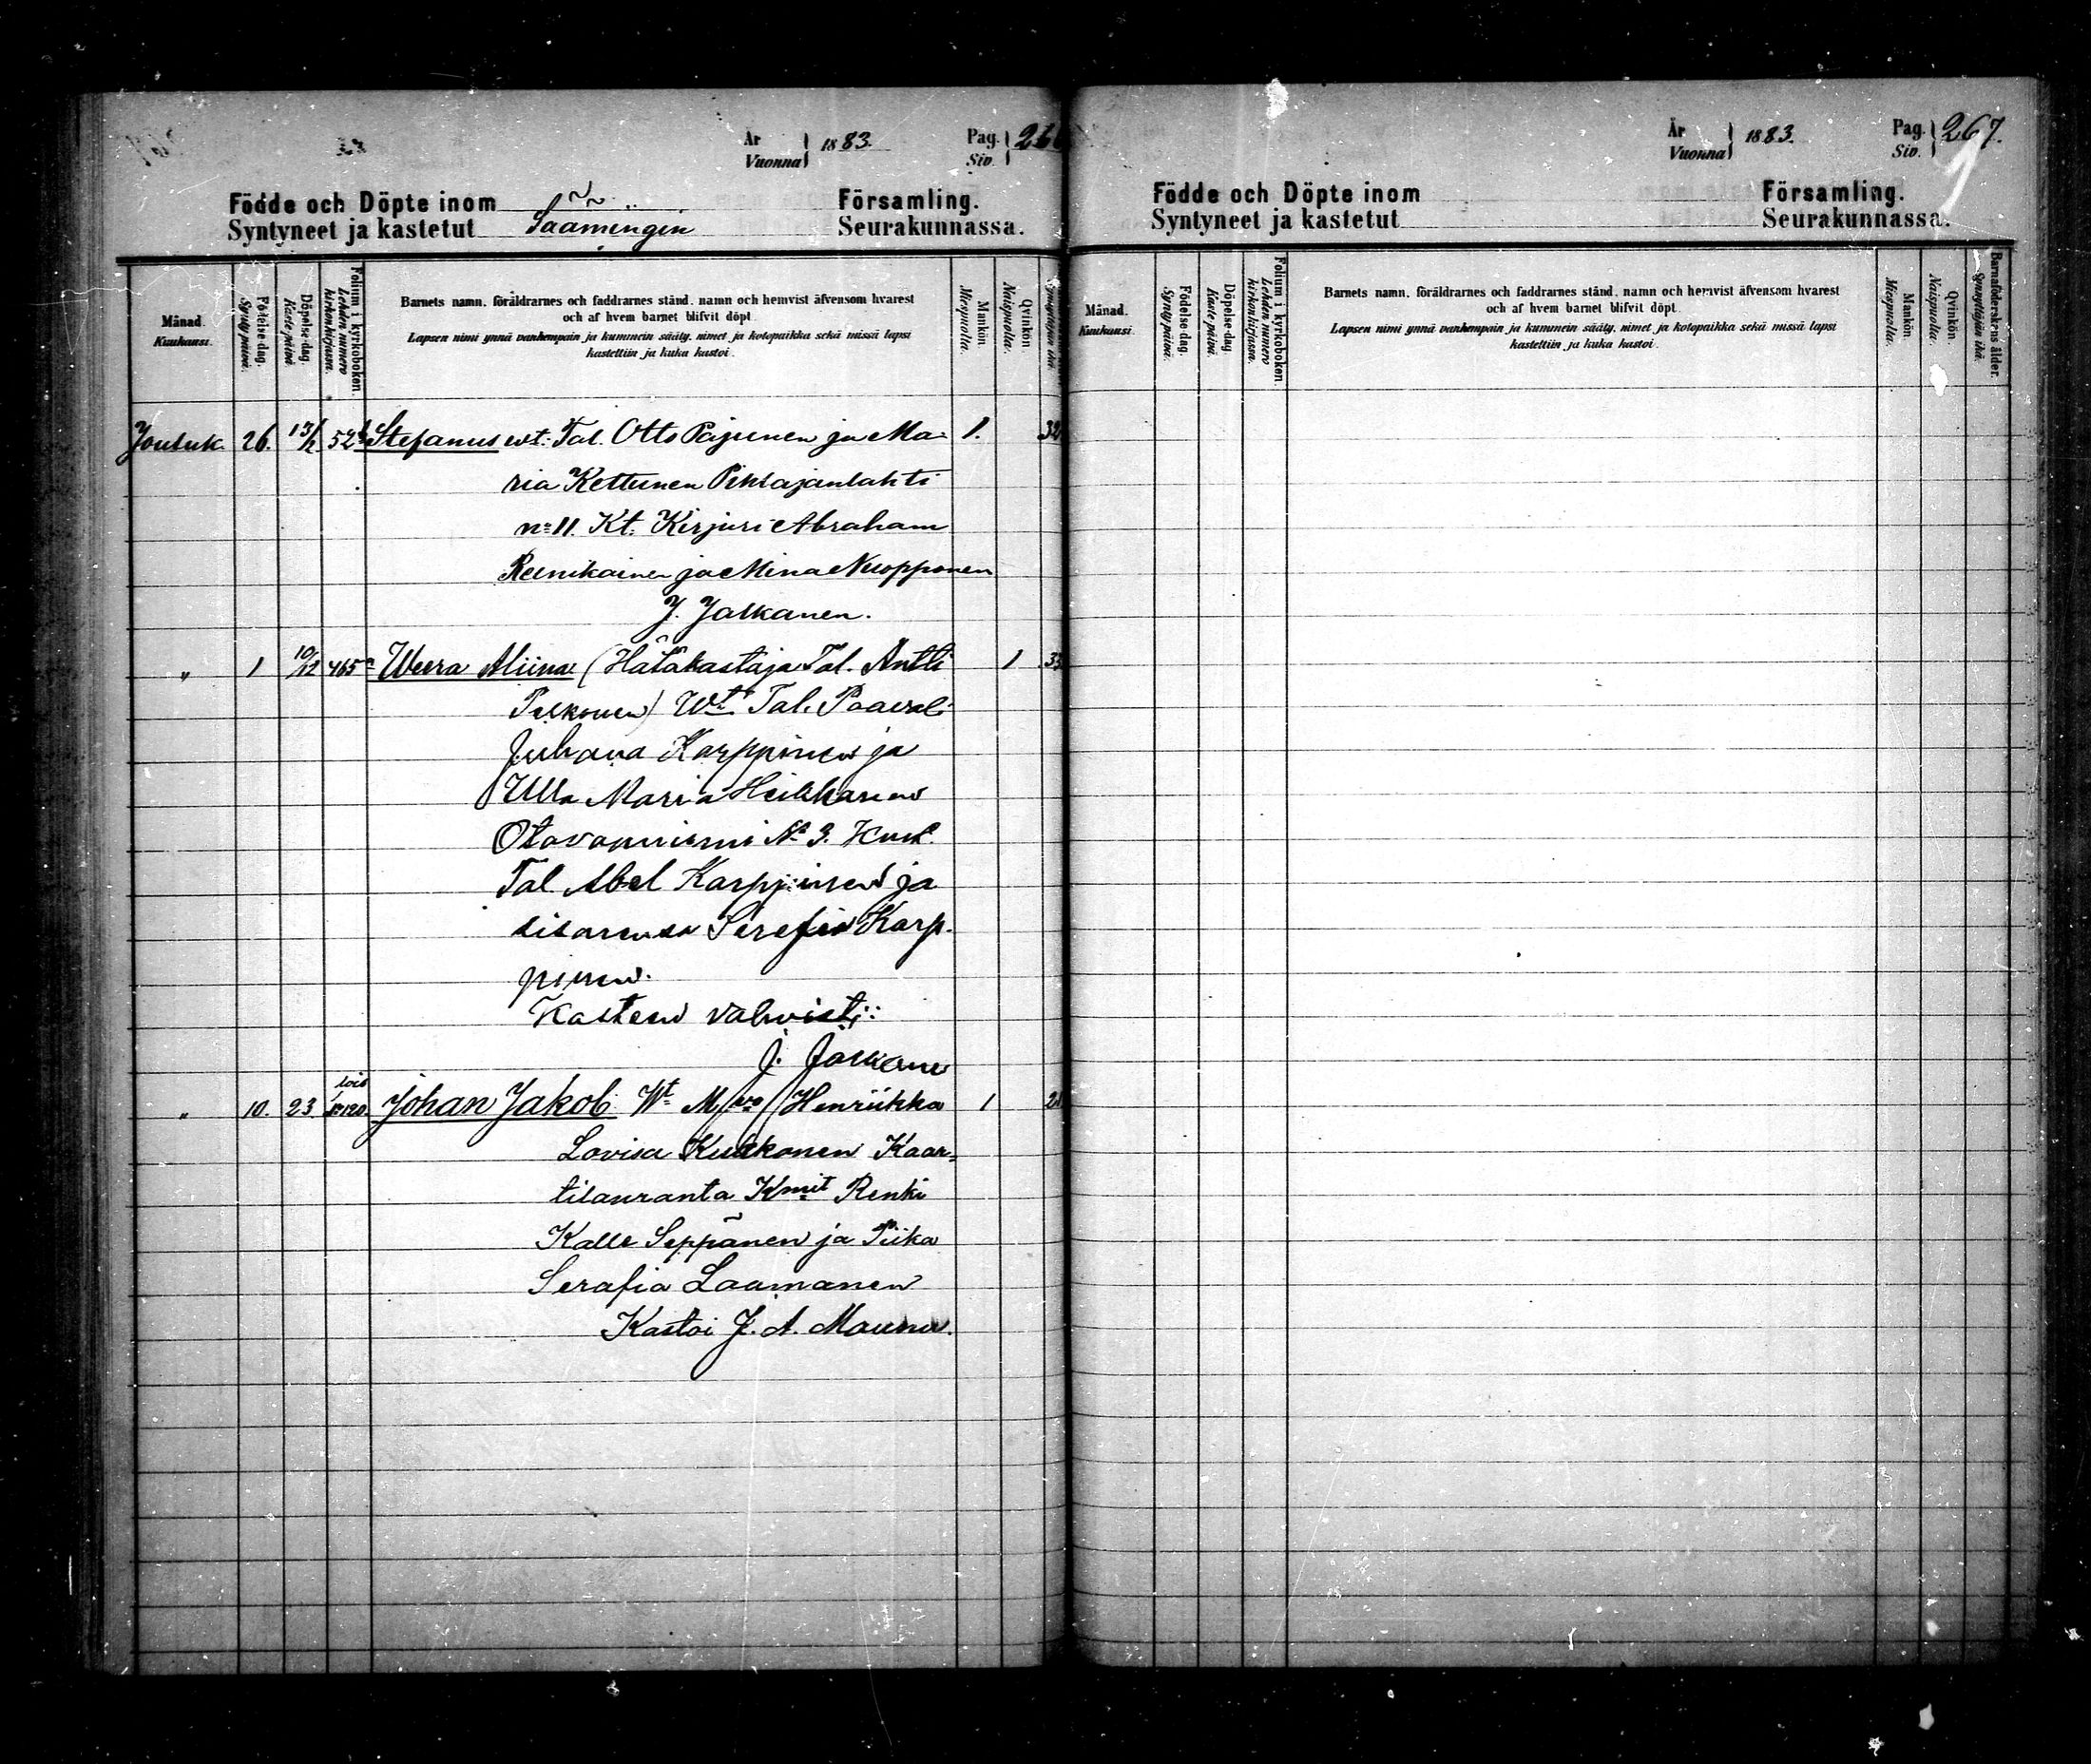 År
Vuonna } 1883. Pag. Siv. } 266
Födde och Döpte inom Församling.
Syntyneet ja kastetut Säämingin Seurakunnassa.
Månad. Kuukausi.
Födelse-dag. Synty päivä.
Döpelse-dag. Kaste päivä.
Folium i kyrkoboken. Lehden numero kirkonkirjassa.
Barnets namn, föräldrarnes och faddrarnes stånd, namn och hemvist äfvensom hvarest
och af hvem barnet blifvit döpt.
Lapsen nimi ynnä vanhempain ja kummein sääty, nimet ja kotopaikka sekä missä lapsi
kastettiin ja kuka kastoi.
Mankön. Miespuolta.
Qvinkön. Naispuolta.
Jouluk. 26. 13/2 52 Stefanus wt. Tal. Otto Pajunen ja Ma- 1. 32
ria Kettunen Pihlajanlahti
no 11. Kt. Kirjuri Abraham
Reinikainen ja Mina Nuopponen
J. Jalkanen.
" 1 10/12 465 Weera Aliina (Hätäkastaja Tal. Antti 1 33
Pelkonen) Wt Tal. Paavali
Juhana Karppinen ja
Ulla Maria Heikkanen
Otavanniemi No 3. Kmt.
Tal Abel Karppinen ja
sisarensa Serefia Karp-
pinen.
Kasteen vahvisti:
J. Jalkanen
" 10. 23 lois No 120. Johan Jakob Wt M/vo/ Henriikka 1 21
Lovisa Kukkonen Kaar-
tilanranta Kmit Renki
Kalle Seppänen ja Piika
Serafia Laamanen
Kastoi J. A. Maunu.
År
Vuonna } 1883. Pag. Siv. } 267.
Födde och Döpte inom Församling.
Syntyneet ja kastetut Seurakunnassa.
Månad. Kuukausi.
Födelse-dag. Synty päivä.
Döpelse-dag. Kaste päivä.
Folium i kyrkoboken. Lehden numero kirkonkirjassa.
Barnets namn, föräldrarnes och faddrarnes stånd, namn och hemvist äfvensom hvarest
och af hvem barnet blifvit döpt.
Lapsen nimi ynnä vanhempain ja kummein sääty, nimet ja kotopaikka sekä missä lapsi
kastettiin ja kuka kastoi.
Mankön. Miespuolta.
Qvinkön. Naispuolta.
Barnaföderskans ålder. Synnyttäjän ikä.